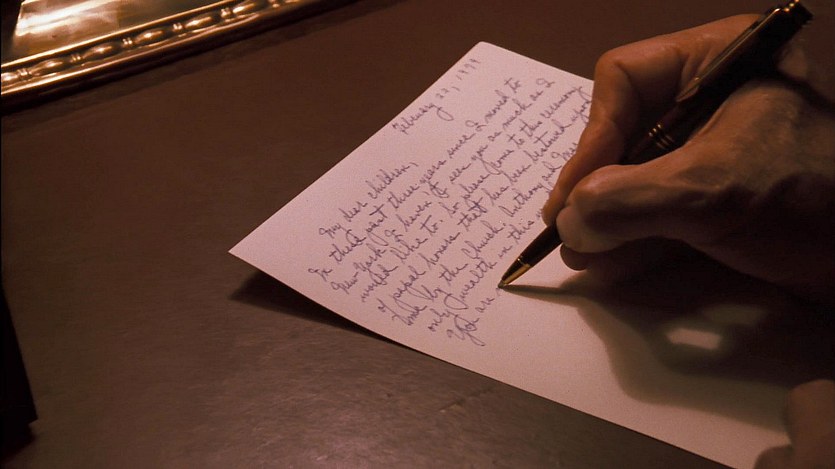 February 23, 1979
My dear children,
In these past three years since I moved to
New York I haven't seen you as much as I
would like to. So please come to this ceremony
of papal honors that has been bestowed upon
by the Church. Anthony and Mary
only wealth in this
You are